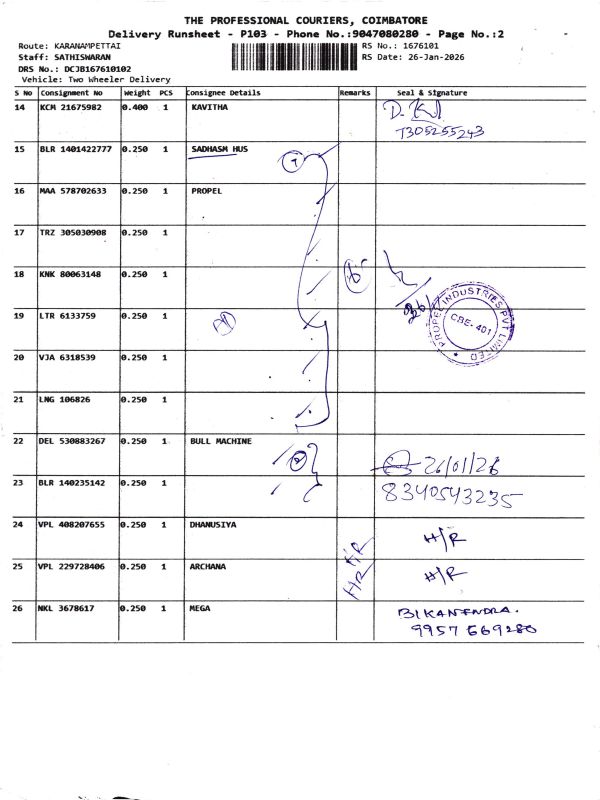 THE PROFESSIONAL COURIERS, COIMBATORE
Delivery Runsheet - P103 - Phone No.:9047080280 - Page No.:2
Route: KARANAMPETTAI
RS No.: 1676101
Staff: SATHISWARAN
RS Date: 26-Jan-2026
DRS No.: DCJB167610102
Vehicle: Two Wheeler Delivery
S No Consignment No Weight PCS Consignee Details Remarks Seal & Signature
14 KCM 21675982 0.400 1 KAVITHA
7305255243
15 BLR 1401422777 0.250 1 SADHASM HUS
16 MAA 578702633 0.250 1 PROPEL
17 TRZ 305030908 0.250 1
18 KNK 80063148 0.250 1
PROPEL INDUSTRIES PVT LIMITED
CBE- 401
19 LTR 6133759 0.250 1
20 VJA 6318539 0.250 1
21 LNG 106826 0.250 1
22 DEL 530883267 0.250 1 BULL MACHINE
26/01/26
23 BLR 140235142 0.250 1
8340543235
24 VPL 408207655 0.250 1 DHANUSIYA H/R H/R
25 VPL 229728406 0.250 1 ARCHANA H/R H/R
26 NKL 3678617 0.250 1 MEGA
BIKANENDRA.
9957669280